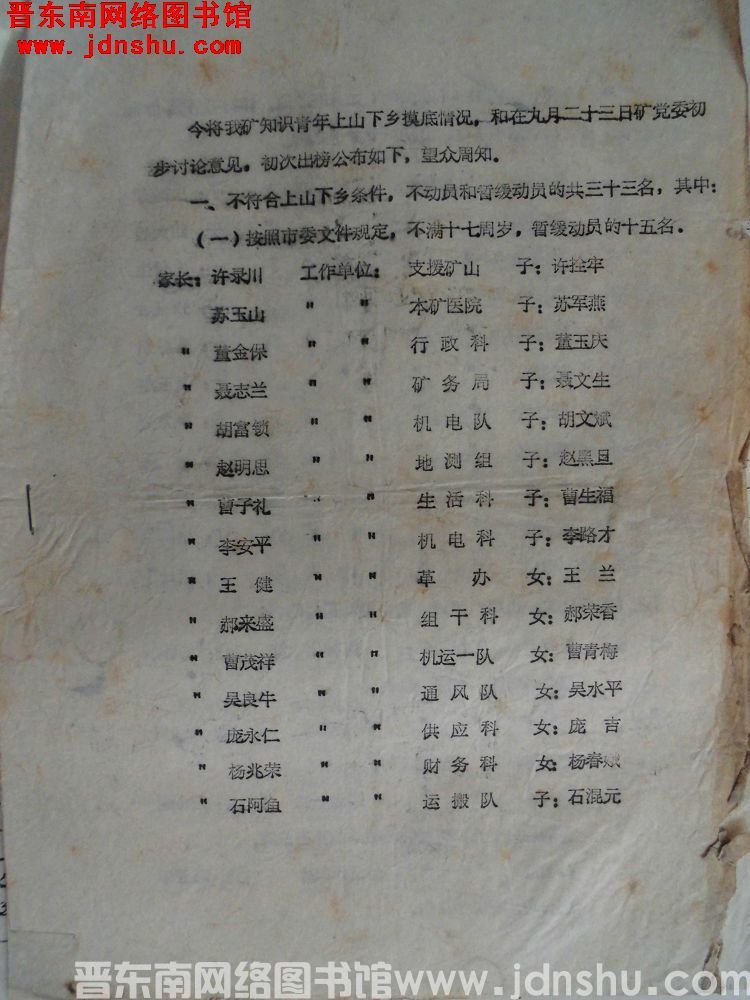 晋东南网络图书馆
www.jdnshu.com
今将我矿知识青年上山下乡摸底情况，和在九月二十三日矿党委初
步讨论意见。初次出榜公布如下，望众周知。
一、不符合上山下乡条件，不动员和暂缓动员的共三十三名，其中：
（一）按照市委文件规定，不满十七周岁，暂缓动员的十五名。
家长：许录川 工作单位： 支援矿山 子：许拴牢
苏玉山 " " 本矿医院 子：苏军燕
" 董金保 " " 行政科 子：董玉庆
" 聂志兰 " " 矿务局 子：聂文生
" 胡富锁 " " 机电队 子：胡文斌
" 赵明思 " " 地测组 子：赵黑旦
" 曹子礼 " " 生活科 子：曹生福
" 李安平 " " 机电科 子：李路才
" 王健 " " 革办 女：王兰
" 郝来盛 " " 组干科 女：郝荣香
" 曹茂祥 " " 机运一队 女：曹青梅
" 吴良牛 " " 通风队 女：吴水平
" 庞永仁 " " 供应科 女：庞吉
" 杨兆荣 " " 财务科 女：杨春
" 石阿鱼 " " 运搬队 子：石混元
晋东南网络图书馆www.jdnshu.com